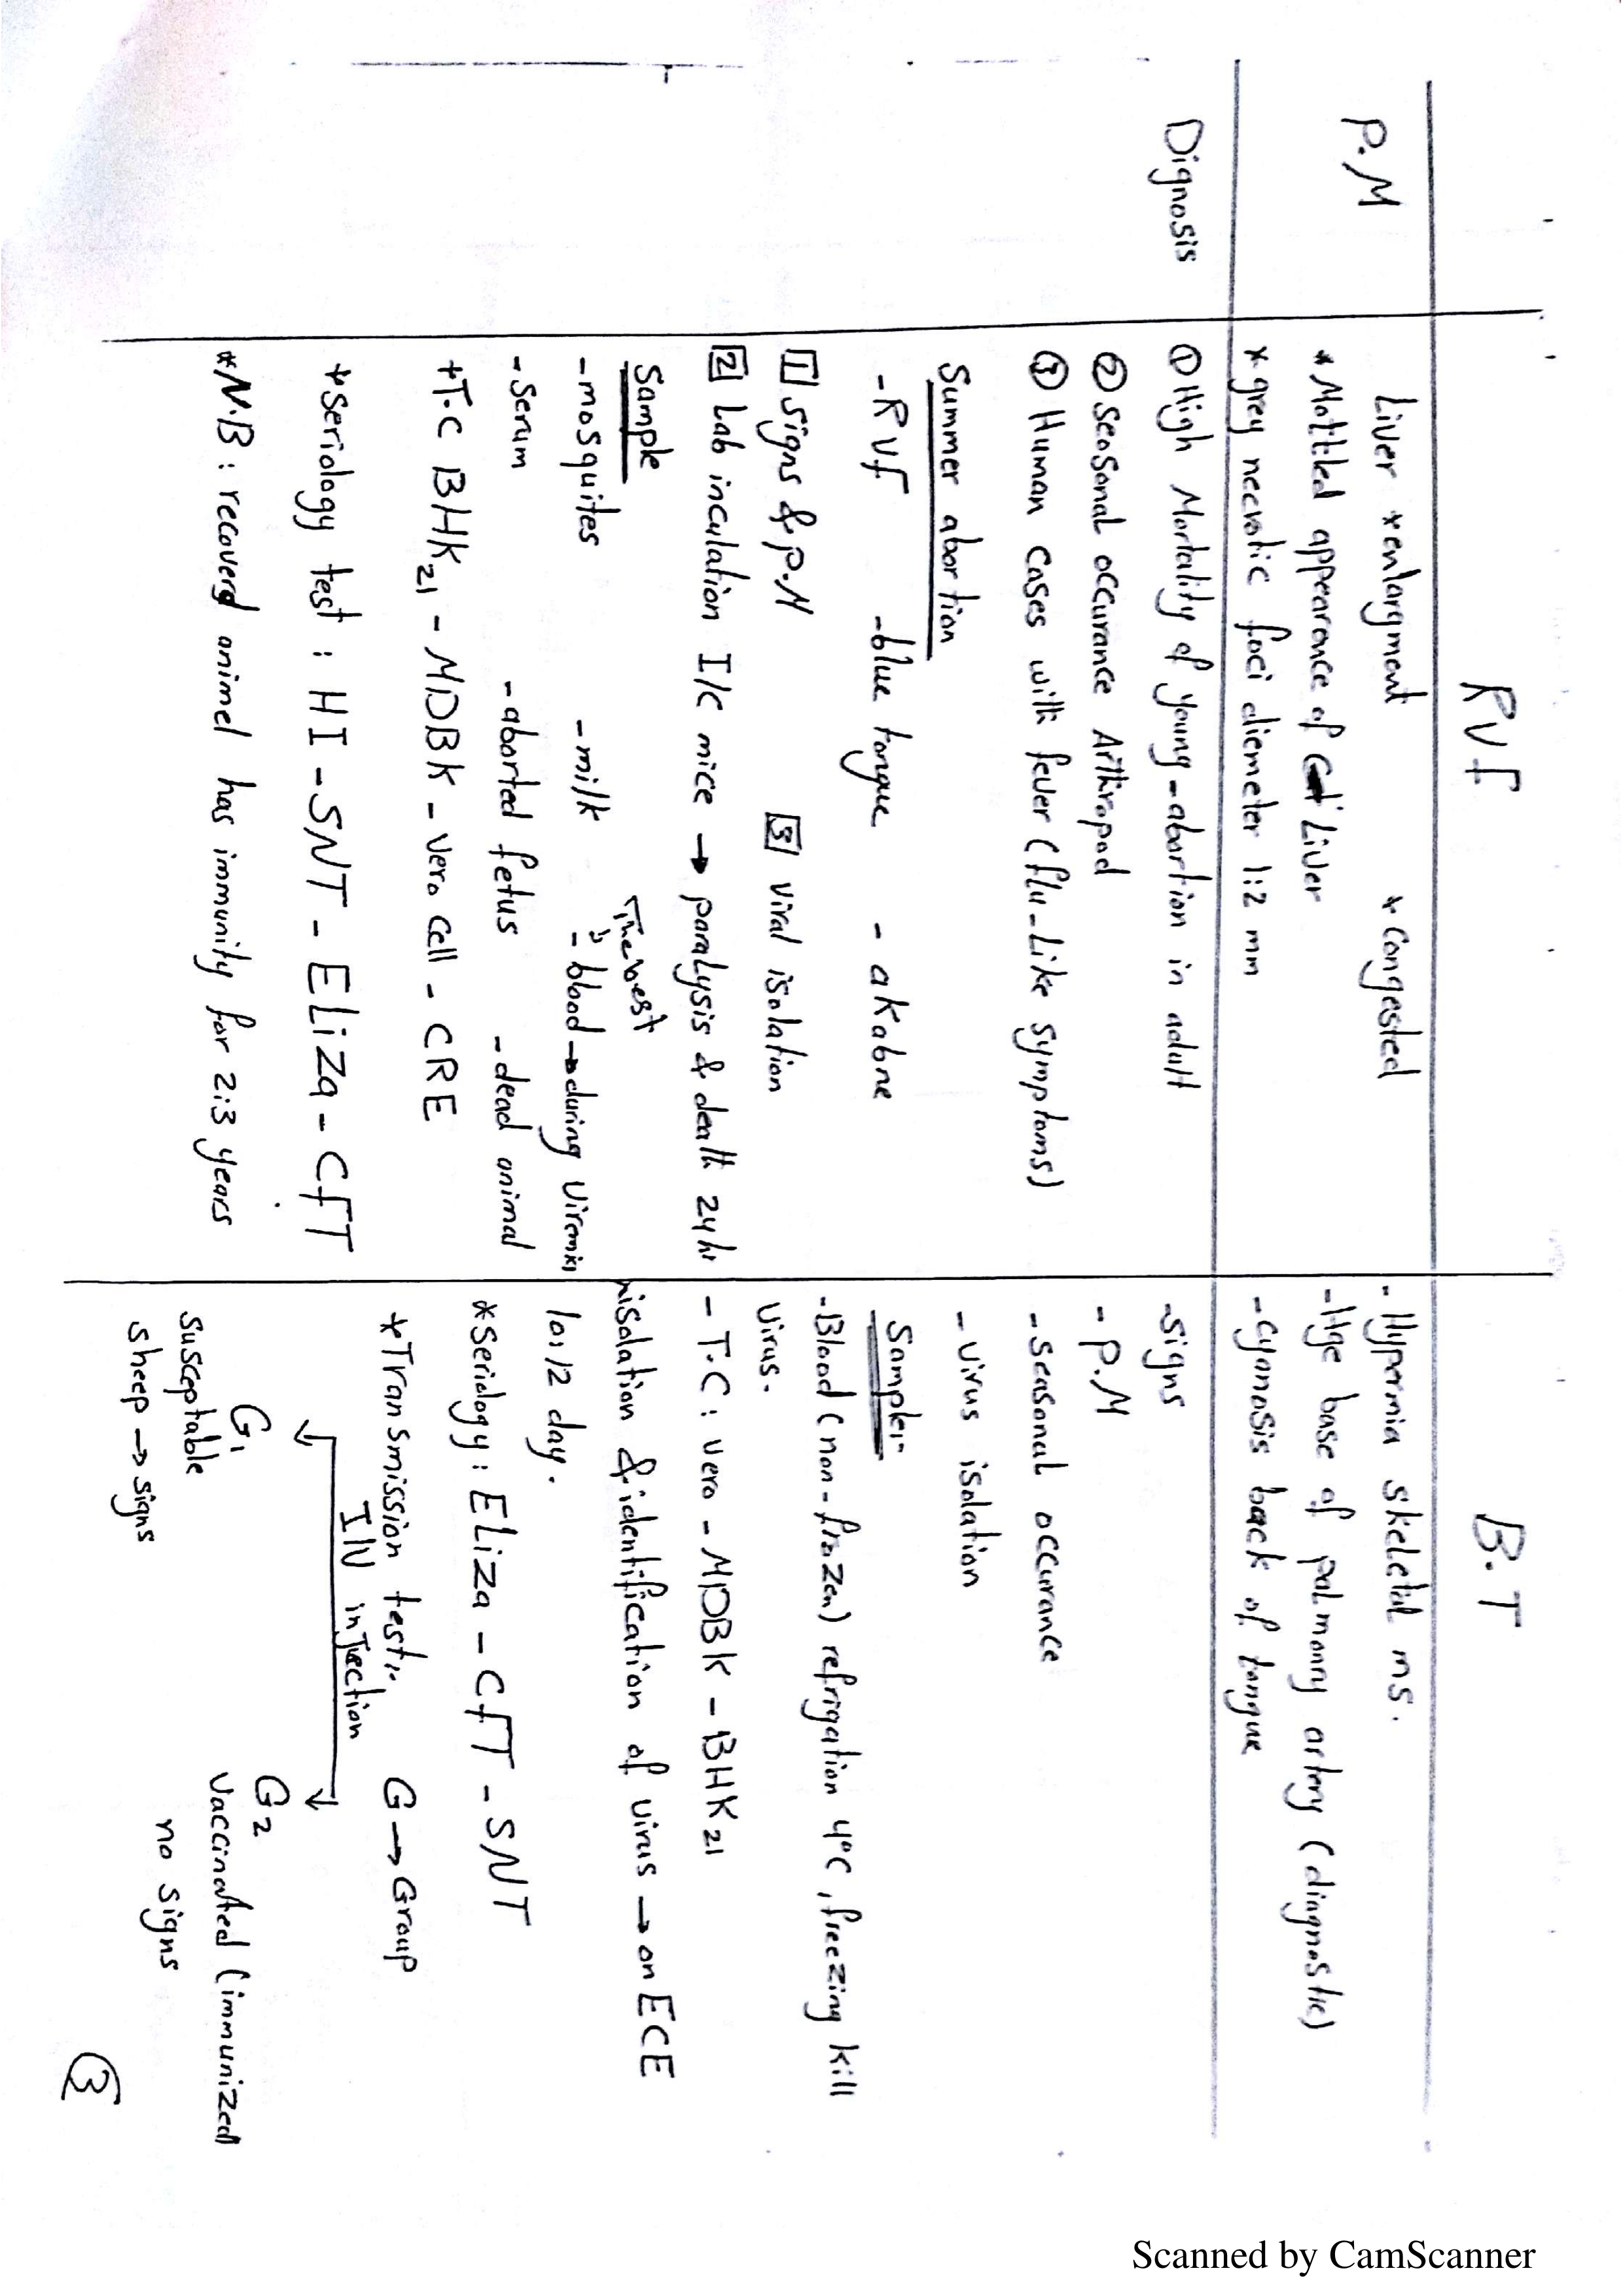 RVf
B.T
P.M
Liver *enlargment * Congested
* Mottled appearence of Liver
* grey necrotic foci diemeter 1:2 mm
- Hypermia skeletal ms.
- Hge base of palmonary artery (diagnostic)
- cyanosis back of tongue
Dignosis
① High Mortality of young - abortion in adult
② Seasonal occurance Arthropod
③ Human cases with fever (flu-Like symptoms)
Summer abortion
- RVf - blue tongue - akabne
1 signs & P.M 3 viral isolation
2 Lab inculation I/c mice → paralysis & death 24 hr
Sample The best
- mosquites - milk - blood → during viremia
- Serum - aborted fetus - dead animal
*T.C BHK21 - MDBK - vero cell - CRE
*Seriology test : HI - SNT - ELiza - CfT
*N.B : recoverd animel has immunity for 2:3 years
- signs
- P.M
- seasonal occurance
- virus isolation
Sampler
- Blood (non-frozen) refrigation 4°C, freezing kill
virus.
- T.C : vero - MDBK - BHK21
isolation & identification of virus → on ECE
10:12 day.
*Seriology : ELiza - CfT - SNT
*Transmission test:, G → Group
I/V injection
G1 G2
Susceptable Vaccinated (immunized
sheep → signs no signs
3
Scanned by CamScanner